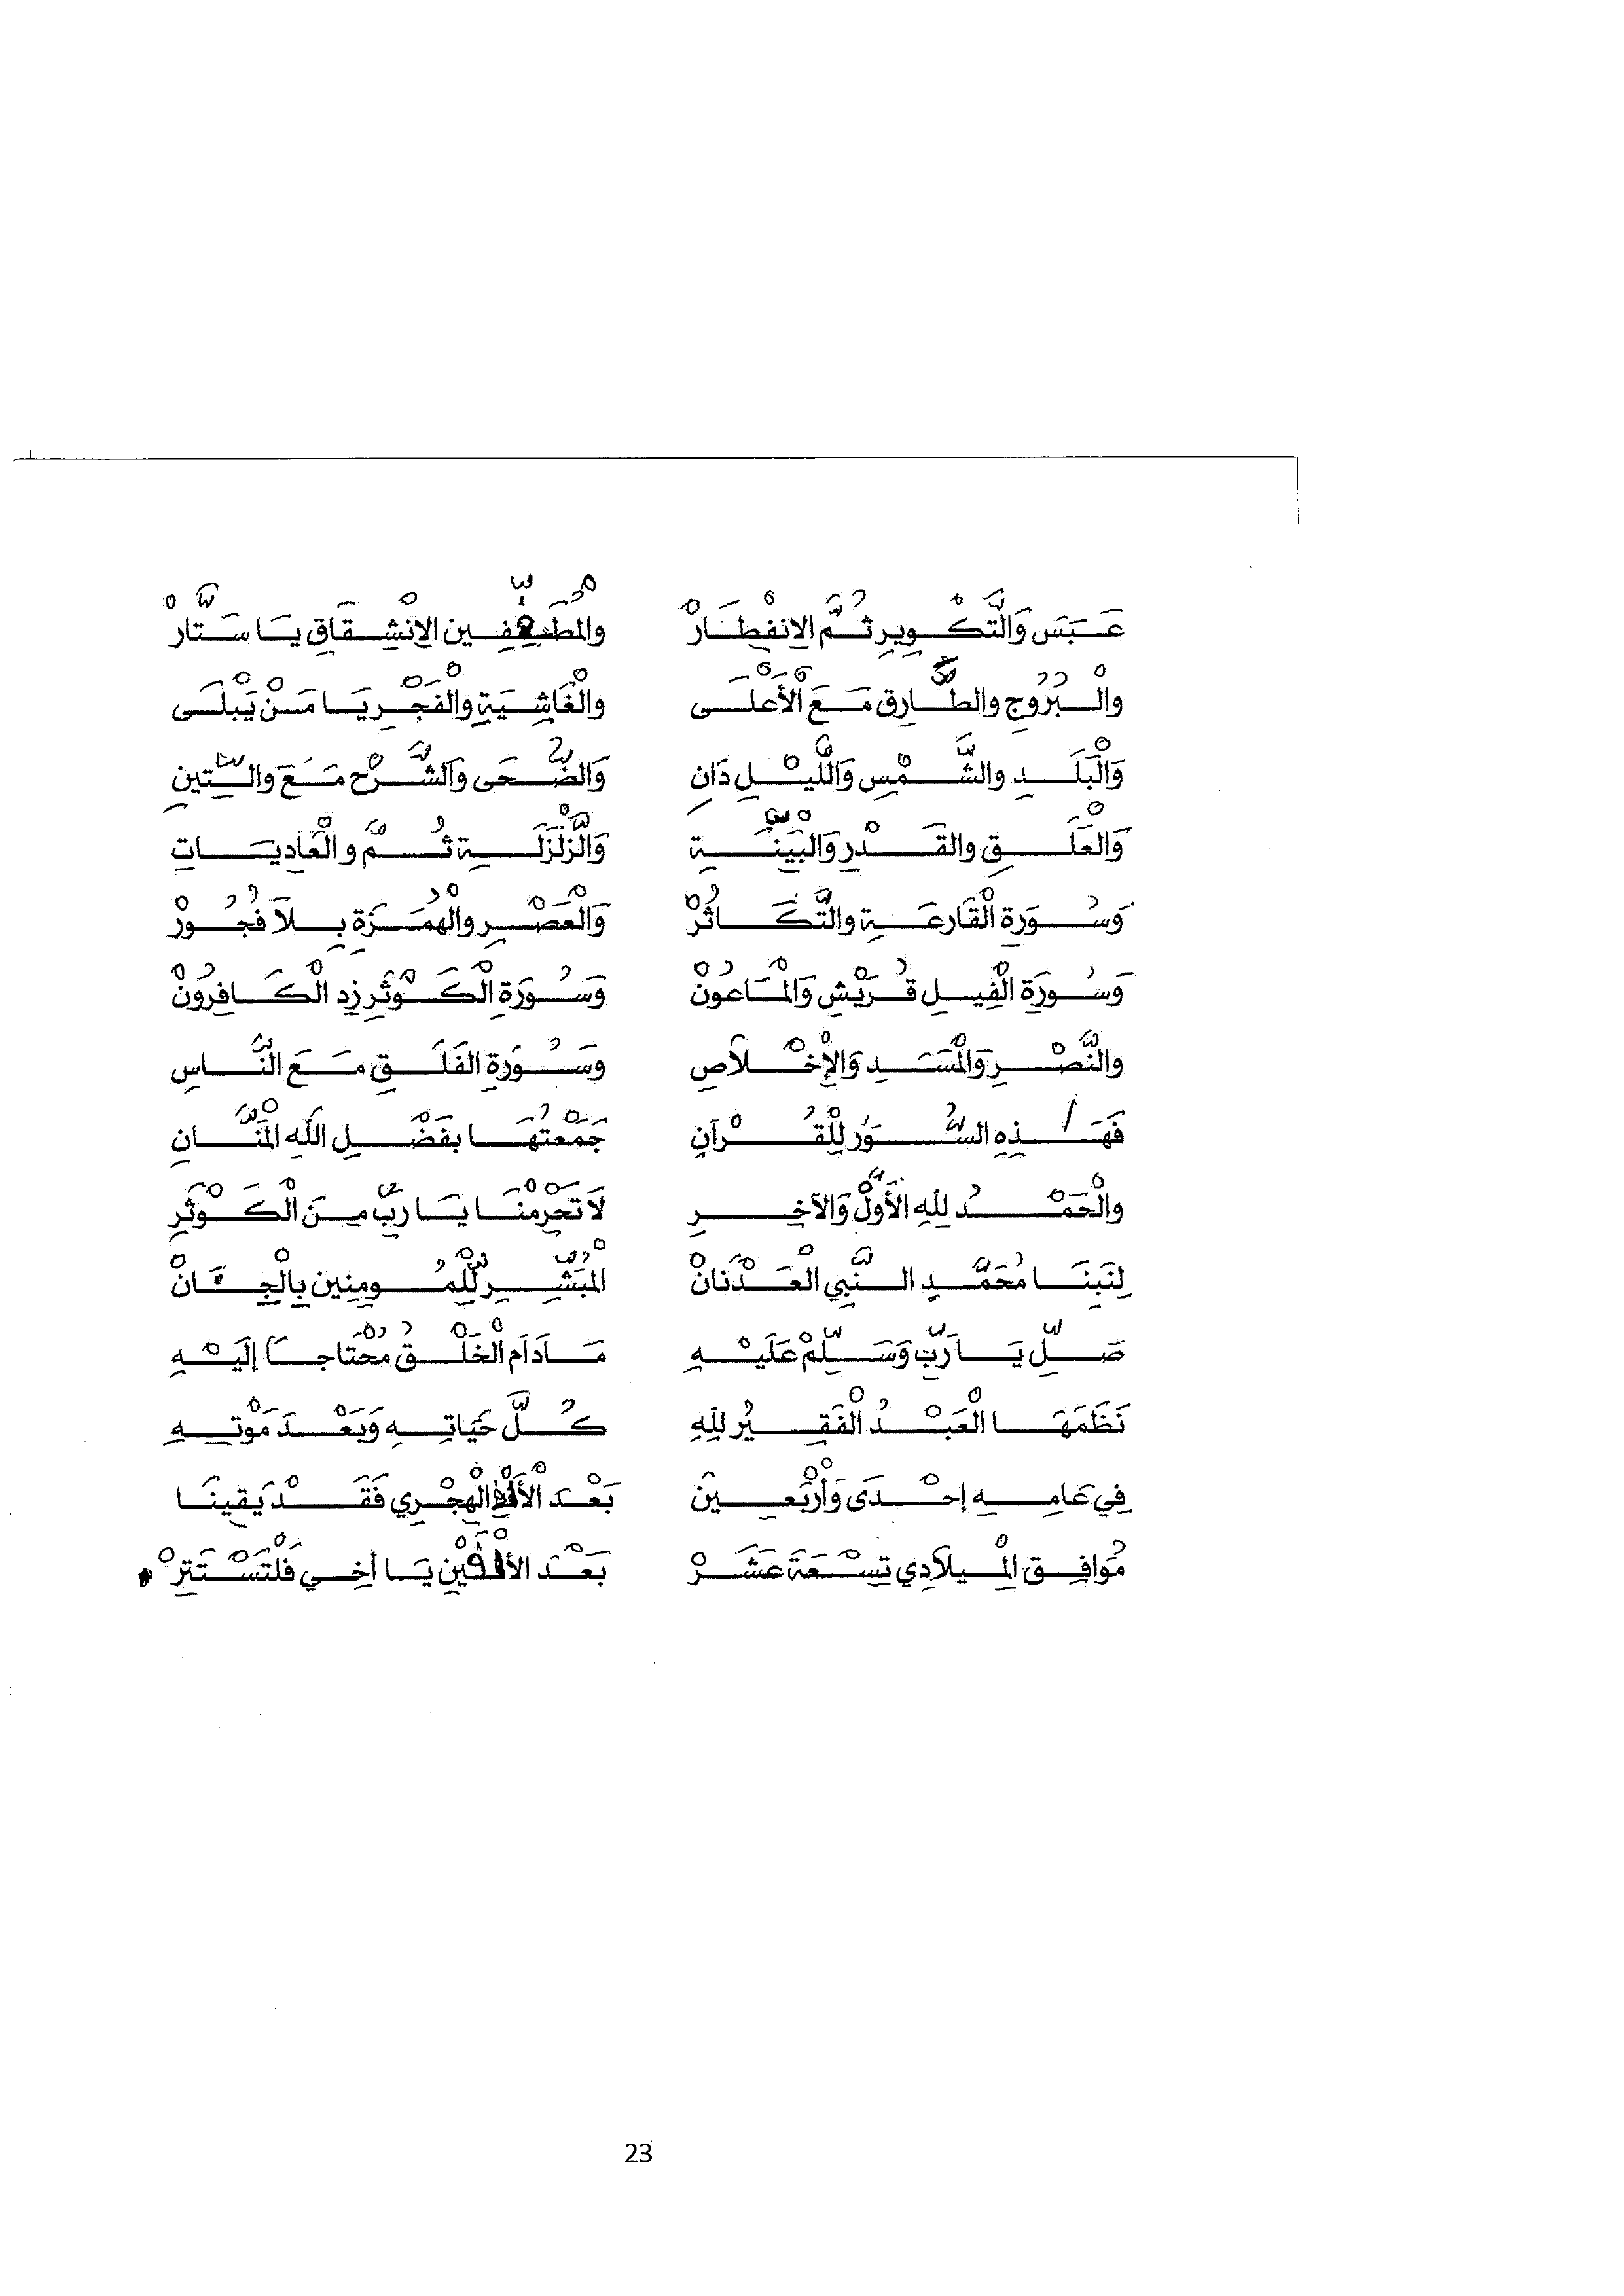 عَبَسَ وَالتَّكْوِيرِ ثُمَّ الِانْفِطَارْ وَالْمُطَفِّفِينَ الِانْشِقَاقِ يَا سَتَّارْ
والْبُرُوجِ والطَّارِقِ مَعَ الْأَعْلَى والْغَاشِيَةِ والْفَجْرِ يَا مَنْ يَبْلَى
وَالْبَلَدِ والشَّمْسِ وَاللَّيْلِ دَانِ وَالضُّحَى وَالشَّرْحِ مَعَ والتِّينِ
وَالْعَلَقِ والقَدْرِ وَالْبَيِّنَةِ وَالزَّلْزَلَةِ ثُمَّ والْعَادِيَاتِ
وَسُورَةِ الْقَارِعَةِ والتَّكَاثُرْ وَالْعَصْرِ والْهُمَزَةِ بِلاَ فُجُورْ
وَسُورَةِ الْفِيلِ قُرَيْشٍ وَالْمَاعُونْ وَسُورَةِ الْكَوْثَرِ زِدِ الْكَافِرُونْ
والنَّصْرِ وَالْمَسَدِ وَالْإِخْلاَصِ وَسُورَةِ الفَلَقِ مَعَ النَّاسِ
فَهَذِهِ السُّوَرُ لِلْقُرْآنِ جَمَعْتُهَا بِفَضْلِ اللَّهِ الْمَنَّانِ
والْحَمْدُ لِلَّهِ الْأَوَّلِ وَالآخِرِ لاَ تَحْرِمْنَا يَا رَبِّ مِنَ الْكَوْثَرِ
لِنَبِيِّنَا مُحَمَّدٍ النَّبِي الْعَدْنَانْ الْمُبَشِّرِ لِلْمُومِنِينَ بِالْجِنَانْ
صَلِّ يَا رَبِّ وَسَلِّمْ عَلَيْهِ مَادَامَ الْخَلْقُ مُحْتَاجًا إِلَيْهِ
نَظَمَهَا الْعَبْدُ الْفَقِيرُ لِلَّهِ كُلَّ حَيَاتِهِ وَبَعْدَ مَوْتِهِ
فِي عَامِهِ إحْدَى وَأَرْبَعِينَ بَعْدَ الْأَلْفِ الْهِجْرِي فَقَدْ يَقِينَا
مُوَافِقِ الْمِيلاَدِي تِسْعَةَ عَشَرْ بَعْدَ الْأَلْفَيْنِ يَا أَخِي فَلْتَسْتَتِرْ
23